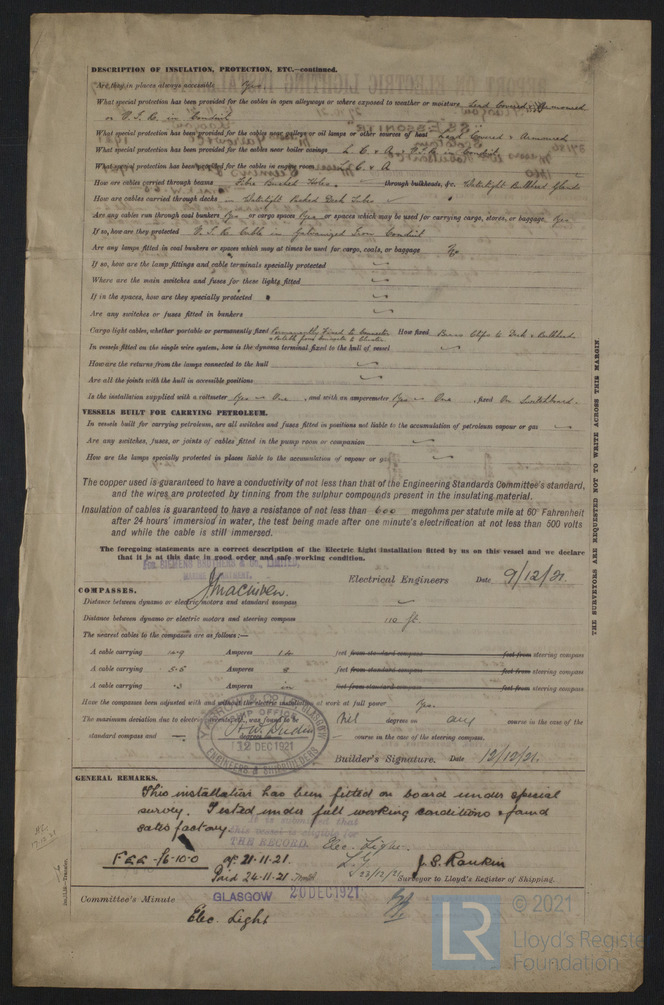 DESCRIPTION OF INSULATION, PROTECTION, ETC.—continued.
Are they in places always accessible Yes
What special protection has been provided for the cables in open alleyways or where exposed to weather or moisture Lead Covered & Armoured
or V.I.R. in Conduit
What special protection has been provided for the cables near galleys or oil lamps or other sources of heat Lead Covered & Armoured
What special protection has been provided for the cables near boiler casings L.C. & A. or V.I.R. in Conduit
What special protection has been provided for the cables in engine room L.C. & A
How are cables carried through beams Holes through bulkheads, &c. Watertight Bulkhead Glands
How are cables carried through decks in Watertight Deck Tubes
Are any cables run through coal bunkers Yes or cargo spaces Yes or spaces which may be used for carrying cargo, stores, or baggage Yes
If so, how are they protected V.I.R. Cable in Galvanized Iron Conduit
Are any lamps fitted in coal bunkers or spaces which may at times be used for cargo, coals, or baggage No
If so, how are the lamp fittings and cable terminals specially protected
Where are the main switches and fuses for these lights fitted
If in the spaces, how are they specially protected
Are any switches or fuses fitted in bunkers
Cargo light cables, whether portable or permanently fixed Permanently Fixed to
How fixed Brass Clips to Deck & Bulkhead.
In vessels fitted on the single wire system, how is the dynamo terminal fixed to the hull of vessel
How are the returns from the lamps connected to the hull
Are all the joints with the hull in accessible positions
Is the installation supplied with a voltmeter Yes One , and with an amperemeter Yes One , fixed On Switchboard.
VESSELS BUILT FOR CARRYING PETROLEUM.
In vessels built for carrying petroleum, are all switches and fuses fitted in positions not liable to the accumulation of petroleum vapour or gas
Are any switches, fuses, or joints of cables fitted in the pump room or companion
How are the lamps specially protected in places liable to the accumulation of vapour or gas
The copper used is guaranteed to have a conductivity of not less than that of the Engineering Standards Committee's standard,
and the wires are protected by tinning from the sulphur compounds present in the insulating material.
Insulation of cables is guaranteed to have a resistance of not less than 600 megohms per statute mile at 60° Fahrenheit
after 24 hours' immersion in water, the test being made after one minute's electrification at not less than 500 volts
and while the cable is still immersed.
The foregoing statements are a correct description of the Electric Light installation fitted by us on this vessel and we declare
that it is at this date in good order and safe working condition.
FOR SIEMENS BROTHERS & CO., LIMITED,
Electrical Engineers Date 9/12/21
COMPASSES.
Distance between dynamo or electric motors and standard compass
Distance between dynamo or electric motors and steering compass 110 ft.
The nearest cables to the compasses are as follows:—
A cable carrying Amperes 14 feet from standard compass feet from steering compass
A cable carrying 5.6 Amperes 8 feet from standard compass feet from steering compass
A cable carrying .3 Amperes in feet from standard compass feet from steering compass
Have the compasses been adjusted with and without the electric installation at work at full power Yes.
The maximum deviation due to electric currents, etc., was found to be Nil degrees on any course in the case of the
standard compass and degrees on course in the case of the steering compass.
YARROW & CO LD GLASGOW
SHIP OFFICE
12 DEC 1921
ENGINEERS & SHIPBUILDERS
Builder's Signature. Date 12/12/21.
GENERAL REMARKS.
This installation has been fitted on board under special
survey. Tested under full working conditions & found
satisfactory.
It is submitted that
this vessel is eligible for
THE RECORD. Elec. Light.
FEE £6-10-0 of. 21.11.21.
Paid 24.11.21
22/12/21
J. S. Rankin
Surveyor to Lloyd's Register of Shipping.
Committee's Minute GLASGOW 20 DEC 1921
Elec. Light
THE SURVEYORS ARE REQUESTED NOT TO WRITE ACROSS THIS MARGIN.
© 2021
LR
Lloyd's Register
Foundation